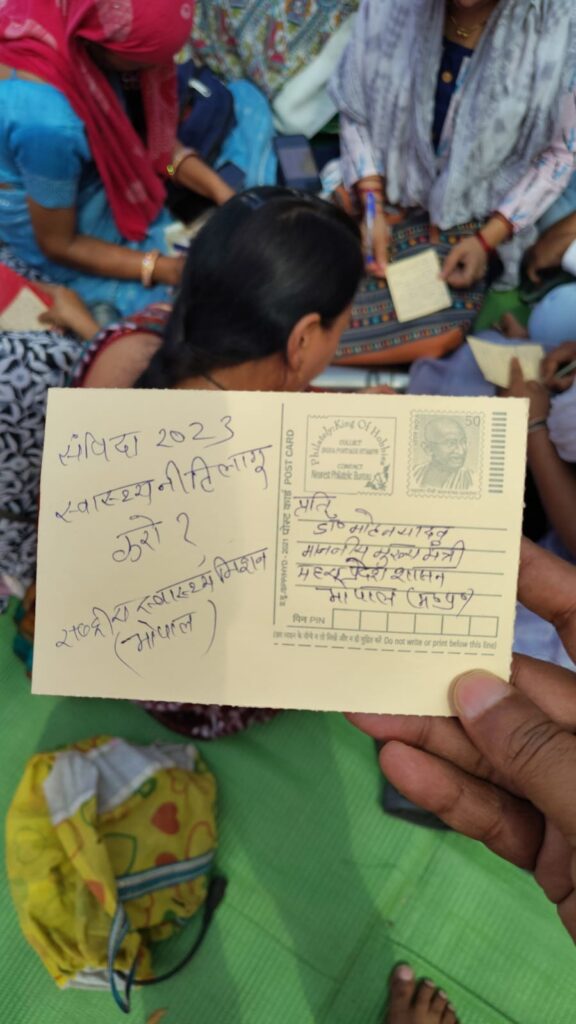 संविदा 2023
स्वास्थ्य नीति लागू
करो ?
राष्ट्रीय स्वास्थ्य मिशन
(भोपाल)
पोस्ट कार्ड POST CARD
Philately: King Of Hobbies
COLLECT
INDIA POSTAGE STAMPS
CONTACT
Nearest Philatelic Bureau
50
प्रति,
डॉ० मोहन यादव
माननीय मुख्य मंत्री
मध्य प्रदेश शासन
भोपाल (म०प्र०)
पिन PIN
(इस लाइन के नीचे न तो लिखें और न ही मुद्रित करें Do not write or print below this line)